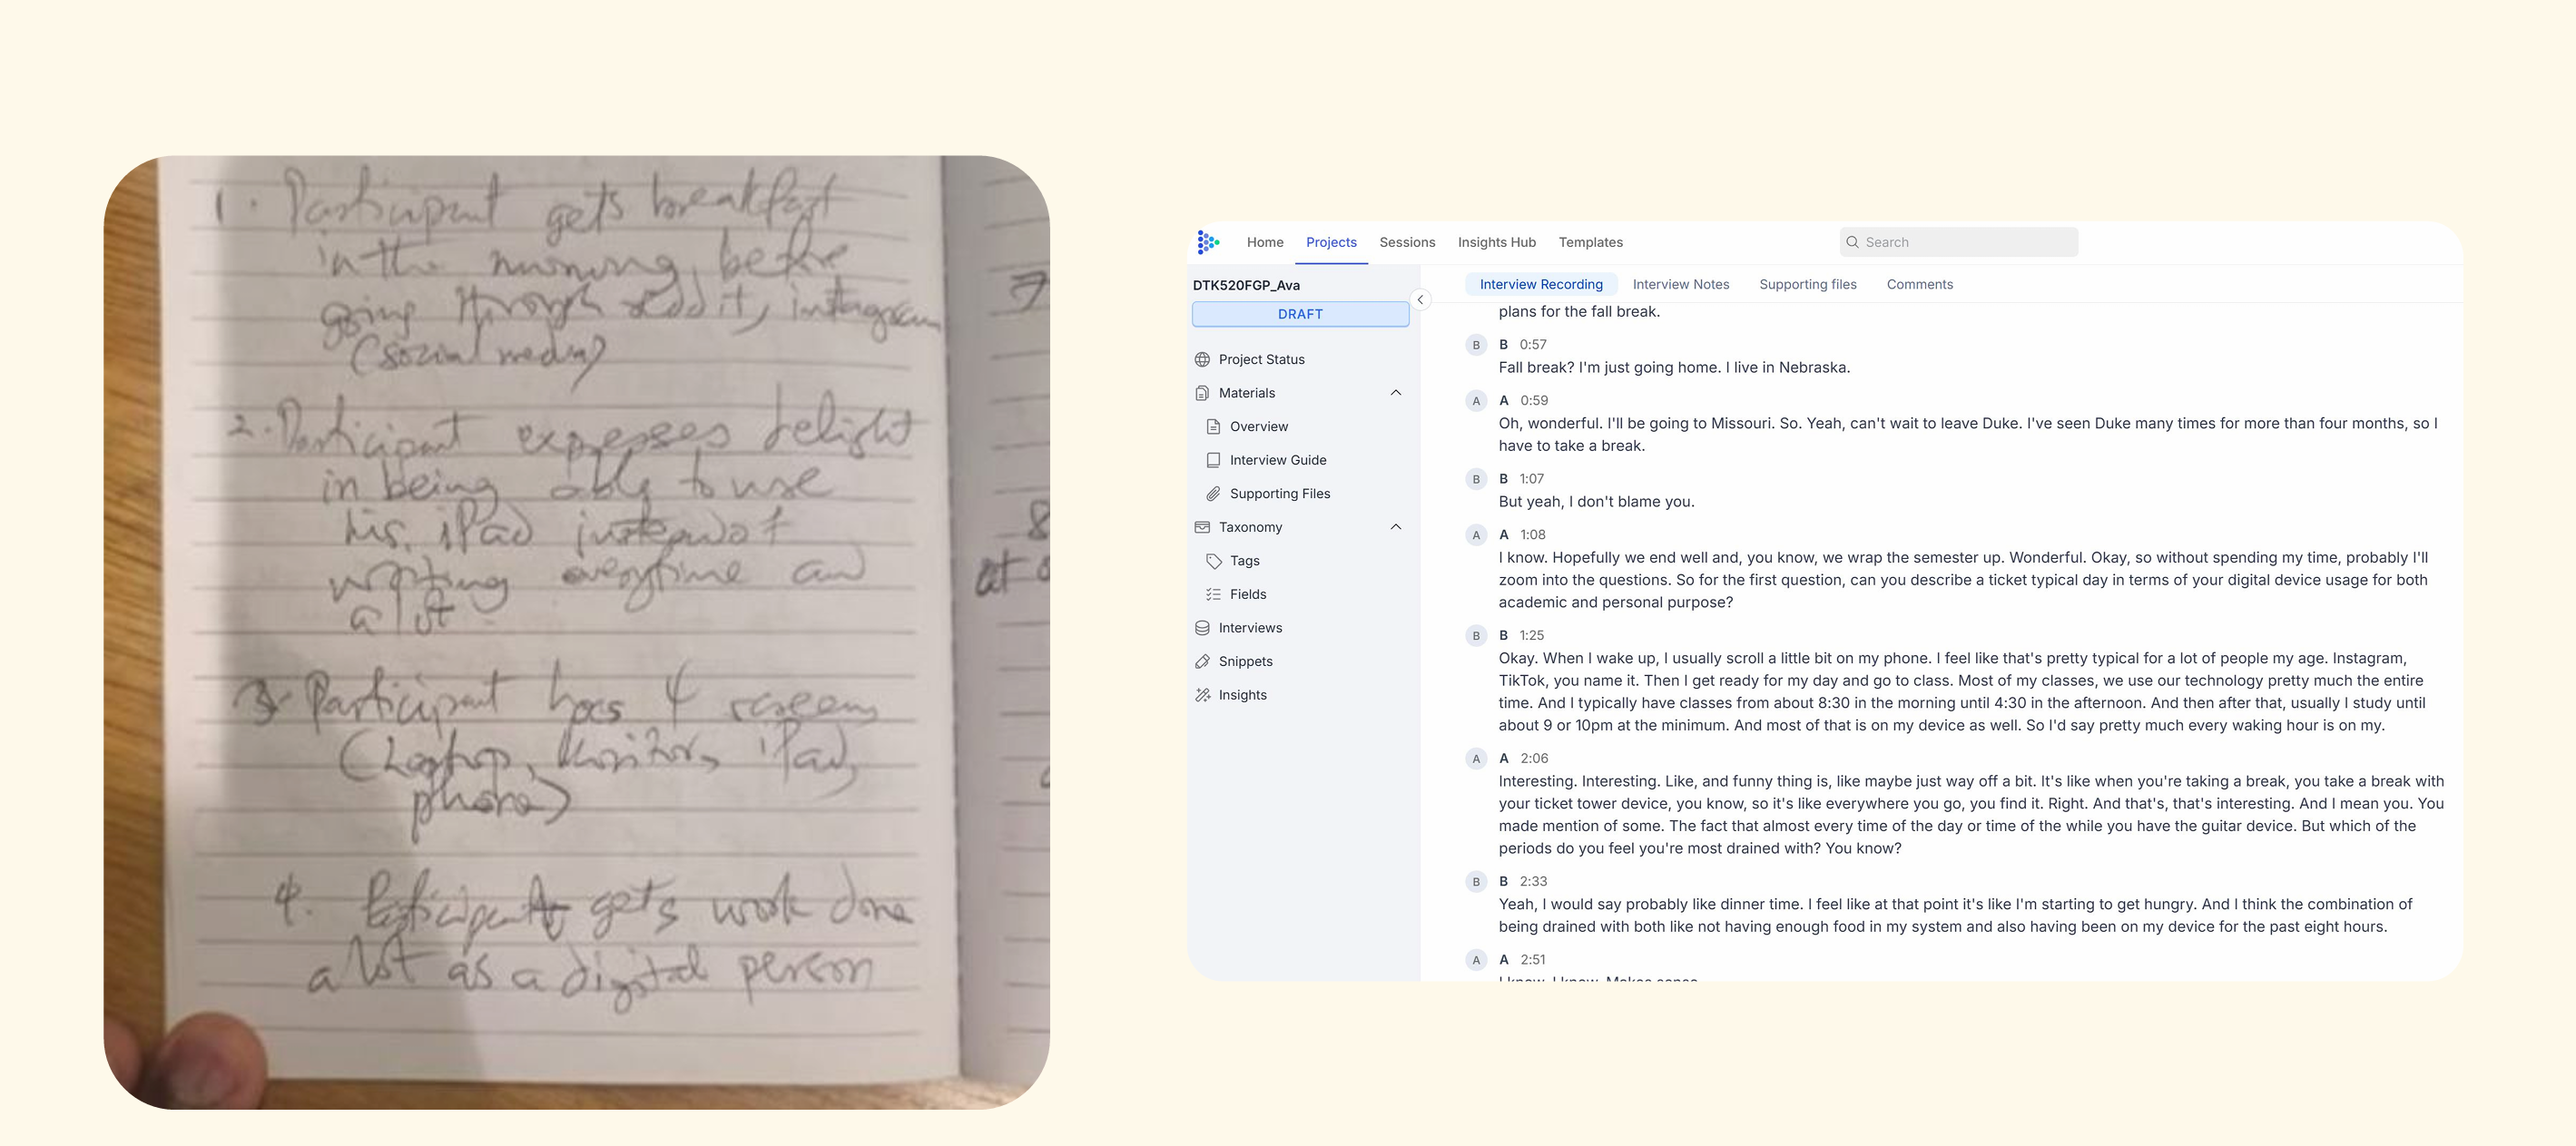 1. Participant gets breakfast
in the morning, before
going through reddit, instagram
(social media)
2. Participant expresses delight
in being able to use
his iPad instead of
writing everytime and
a lot
3. Participant has 4 screens
(Laptop, Monitor, iPad,
phone)
4. Participant gets work done
a lot as a digital person
7
8
at
Home Projects Sessions Insights Hub Templates Search
DTK520FGP_Ava
DRAFT
Project Status
Materials
Overview
Interview Guide
Supporting Files
Taxonomy
Tags
Fields
Interviews
Snippets
Insights
Interview Recording Interview Notes Supporting files Comments
plans for the fall break.
B B 0:57
Fall break? I'm just going home. I live in Nebraska.
A A 0:59
Oh, wonderful. I'll be going to Missouri. So. Yeah, can't wait to leave Duke. I've seen Duke many times for more than four months, so I
have to take a break.
B B 1:07
But yeah, I don't blame you.
A A 1:08
I know. Hopefully we end well and, you know, we wrap the semester up. Wonderful. Okay, so without spending my time, probably I'll
zoom into the questions. So for the first question, can you describe a ticket typical day in terms of your digital device usage for both
academic and personal purpose?
B B 1:25
Okay. When I wake up, I usually scroll a little bit on my phone. I feel like that's pretty typical for a lot of people my age. Instagram,
TikTok, you name it. Then I get ready for my day and go to class. Most of my classes, we use our technology pretty much the entire
time. And I typically have classes from about 8:30 in the morning until 4:30 in the afternoon. And then after that, usually I study until
about 9 or 10pm at the minimum. And most of that is on my device as well. So I'd say pretty much every waking hour is on my.
A A 2:06
Interesting. Interesting. Like, and funny thing is, like maybe just way off a bit. It's like when you're taking a break, you take a break with
your ticket tower device, you know, so it's like everywhere you go, you find it. Right. And that's, that's interesting. And I mean you. You
made mention of some. The fact that almost every time of the day or time of the while you have the guitar device. But which of the
periods do you feel you're most drained with? You know?
B B 2:33
Yeah, I would say probably like dinner time. I feel like at that point it's like I'm starting to get hungry. And I think the combination of
being drained with both like not having enough food in my system and also having been on my device for the past eight hours.
A A 2:51
I know. I know. Makes sense.